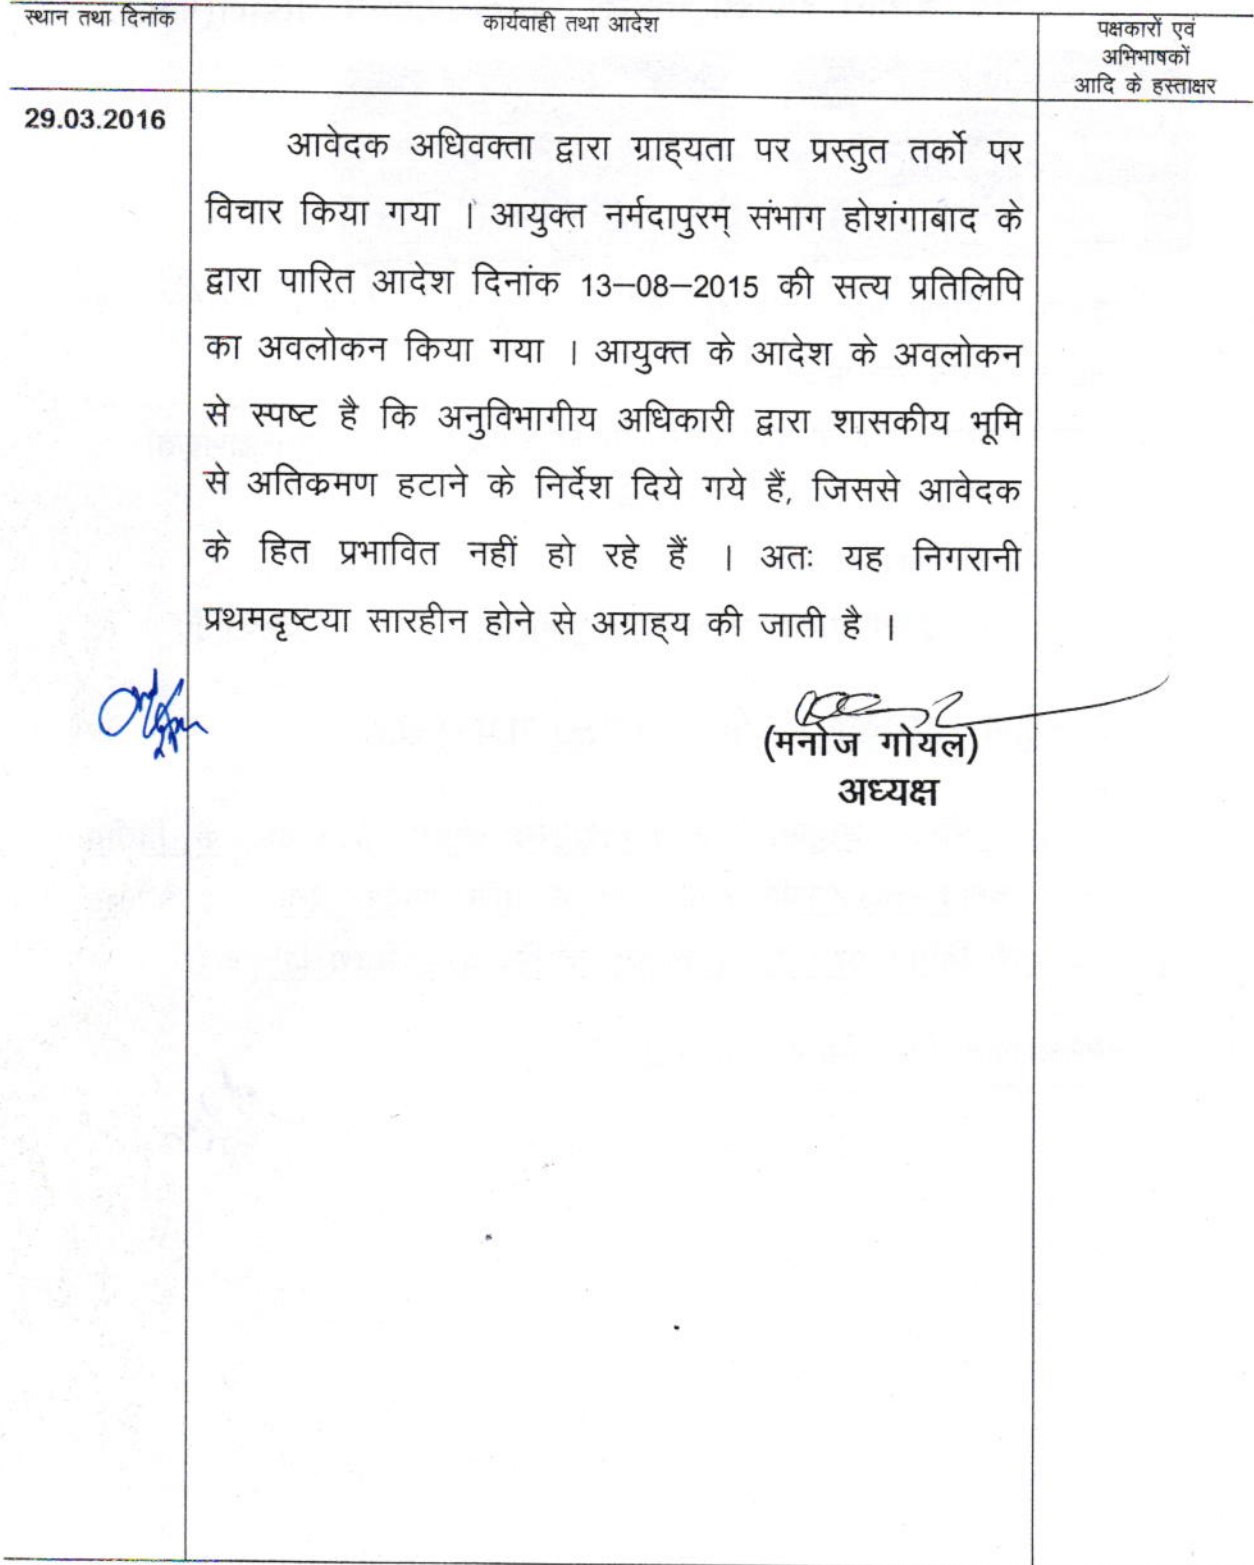 स्थान तथा दिनांक
कार्यवाही तथा आदेश
पक्षकारों एवं
अभिभाषकों
आदि के हस्ताक्षर
29.03.2016
आवेदक अधिवक्ता द्वारा ग्राह्यता पर प्रस्तुत तर्को पर
विचार किया गया । आयुक्त नर्मदापुरम् संभाग होशंगाबाद के
द्वारा पारित आदेश दिनांक 13–08–2015 की सत्य प्रतिलिपि
का अवलोकन किया गया । आयुक्त के आदेश के अवलोकन
से स्पष्ट है कि अनुविभागीय अधिकारी द्वारा शासकीय भूमि
से अतिक्रमण हटाने के निर्देश दिये गये हैं, जिससे आवेदक
के हित प्रभावित नहीं हो रहे हैं । अतः यह निगरानी
प्रथमदृष्टया सारहीन होने से अग्राह्य की जाती है ।
(मनोज गोयल)
अध्यक्ष